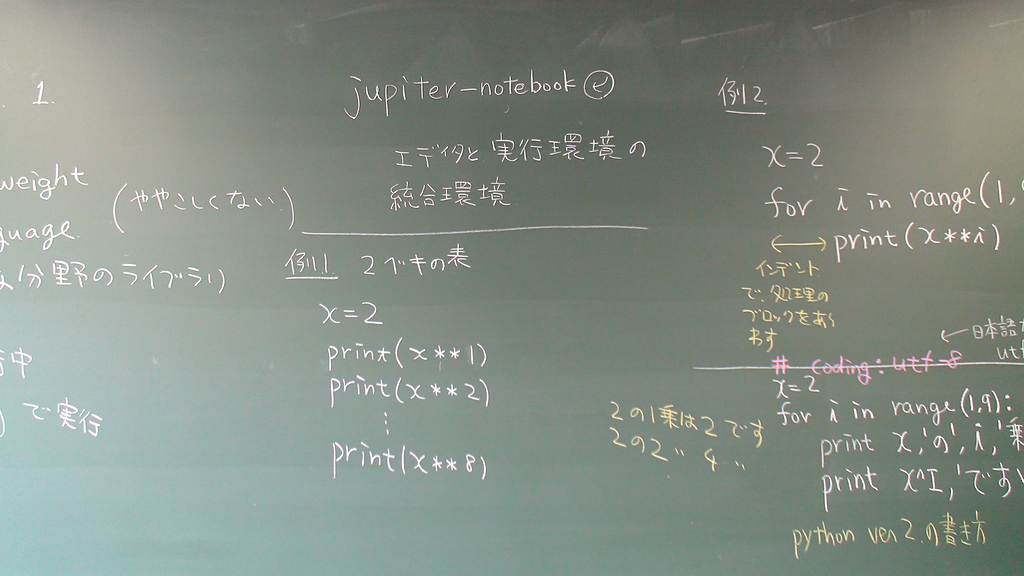 1.
weight
guage.
(ややこしくない)
分野のライブラリ
中
で実行
jupiter-notebook
エディタと実行環境の
統合環境
例1.  2ベキの表
x=2
print(x**1)
print(x**2)
⋮
print(x**8)
例2.
x=2
for i in range(1,
print(x**i)
インデント
で、処理の
ブロックをあら
わす
← 日本語
ut
# coding:utf-8
x=2
for i in range(1,9):
print x,'の',i,'乗
print x^I,'です
2の1乗は2です
2の2 〃 4 〃
python ver2.の書き方